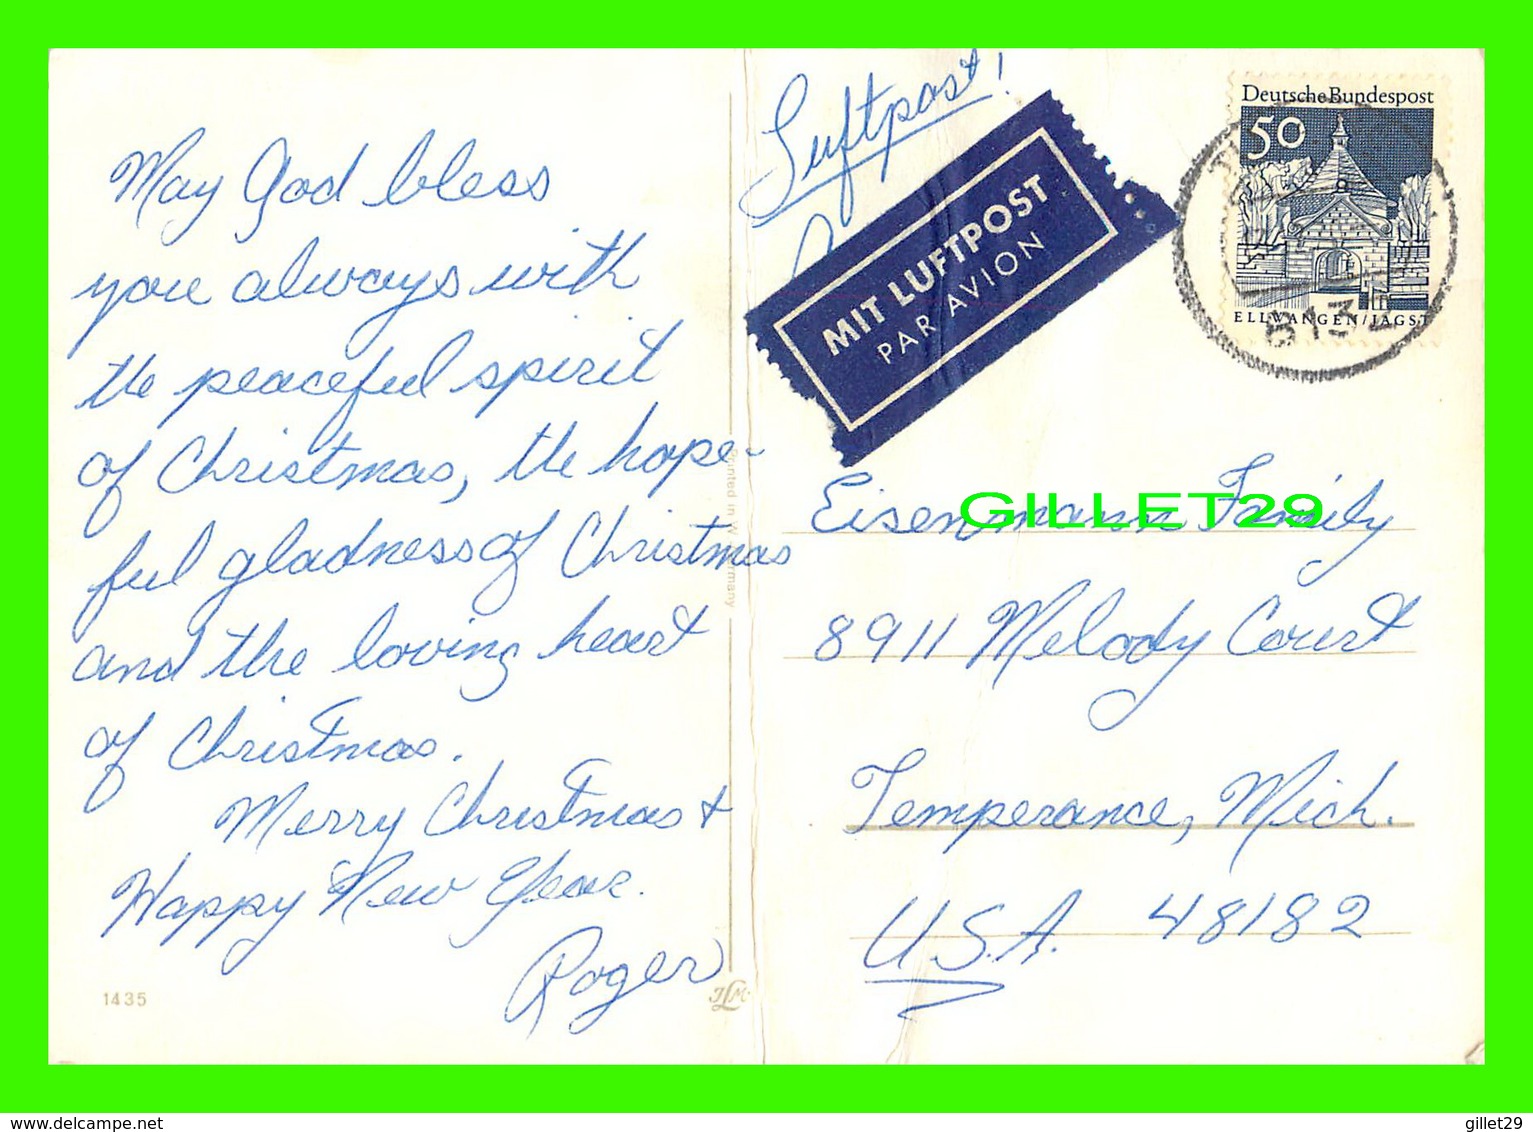 May God bless
you always with
the peaceful spirit
of Christmas, the hope-
ful gladness of Christmas
and the loving heart
of Christmas.
Merry Christmas +
Happy New Year.
Roger
1435
Printed in W. Germany
Luftpost!
MIT LUFTPOST
PAR AVION
Deutsche Bundespost
50
ELLWANGEN/JAGST
513
Eisenmann Family
GILLET29
8911 Melody Court
Temperance, Mich.
U.S.A. 48182
delcampe.net
gillet29